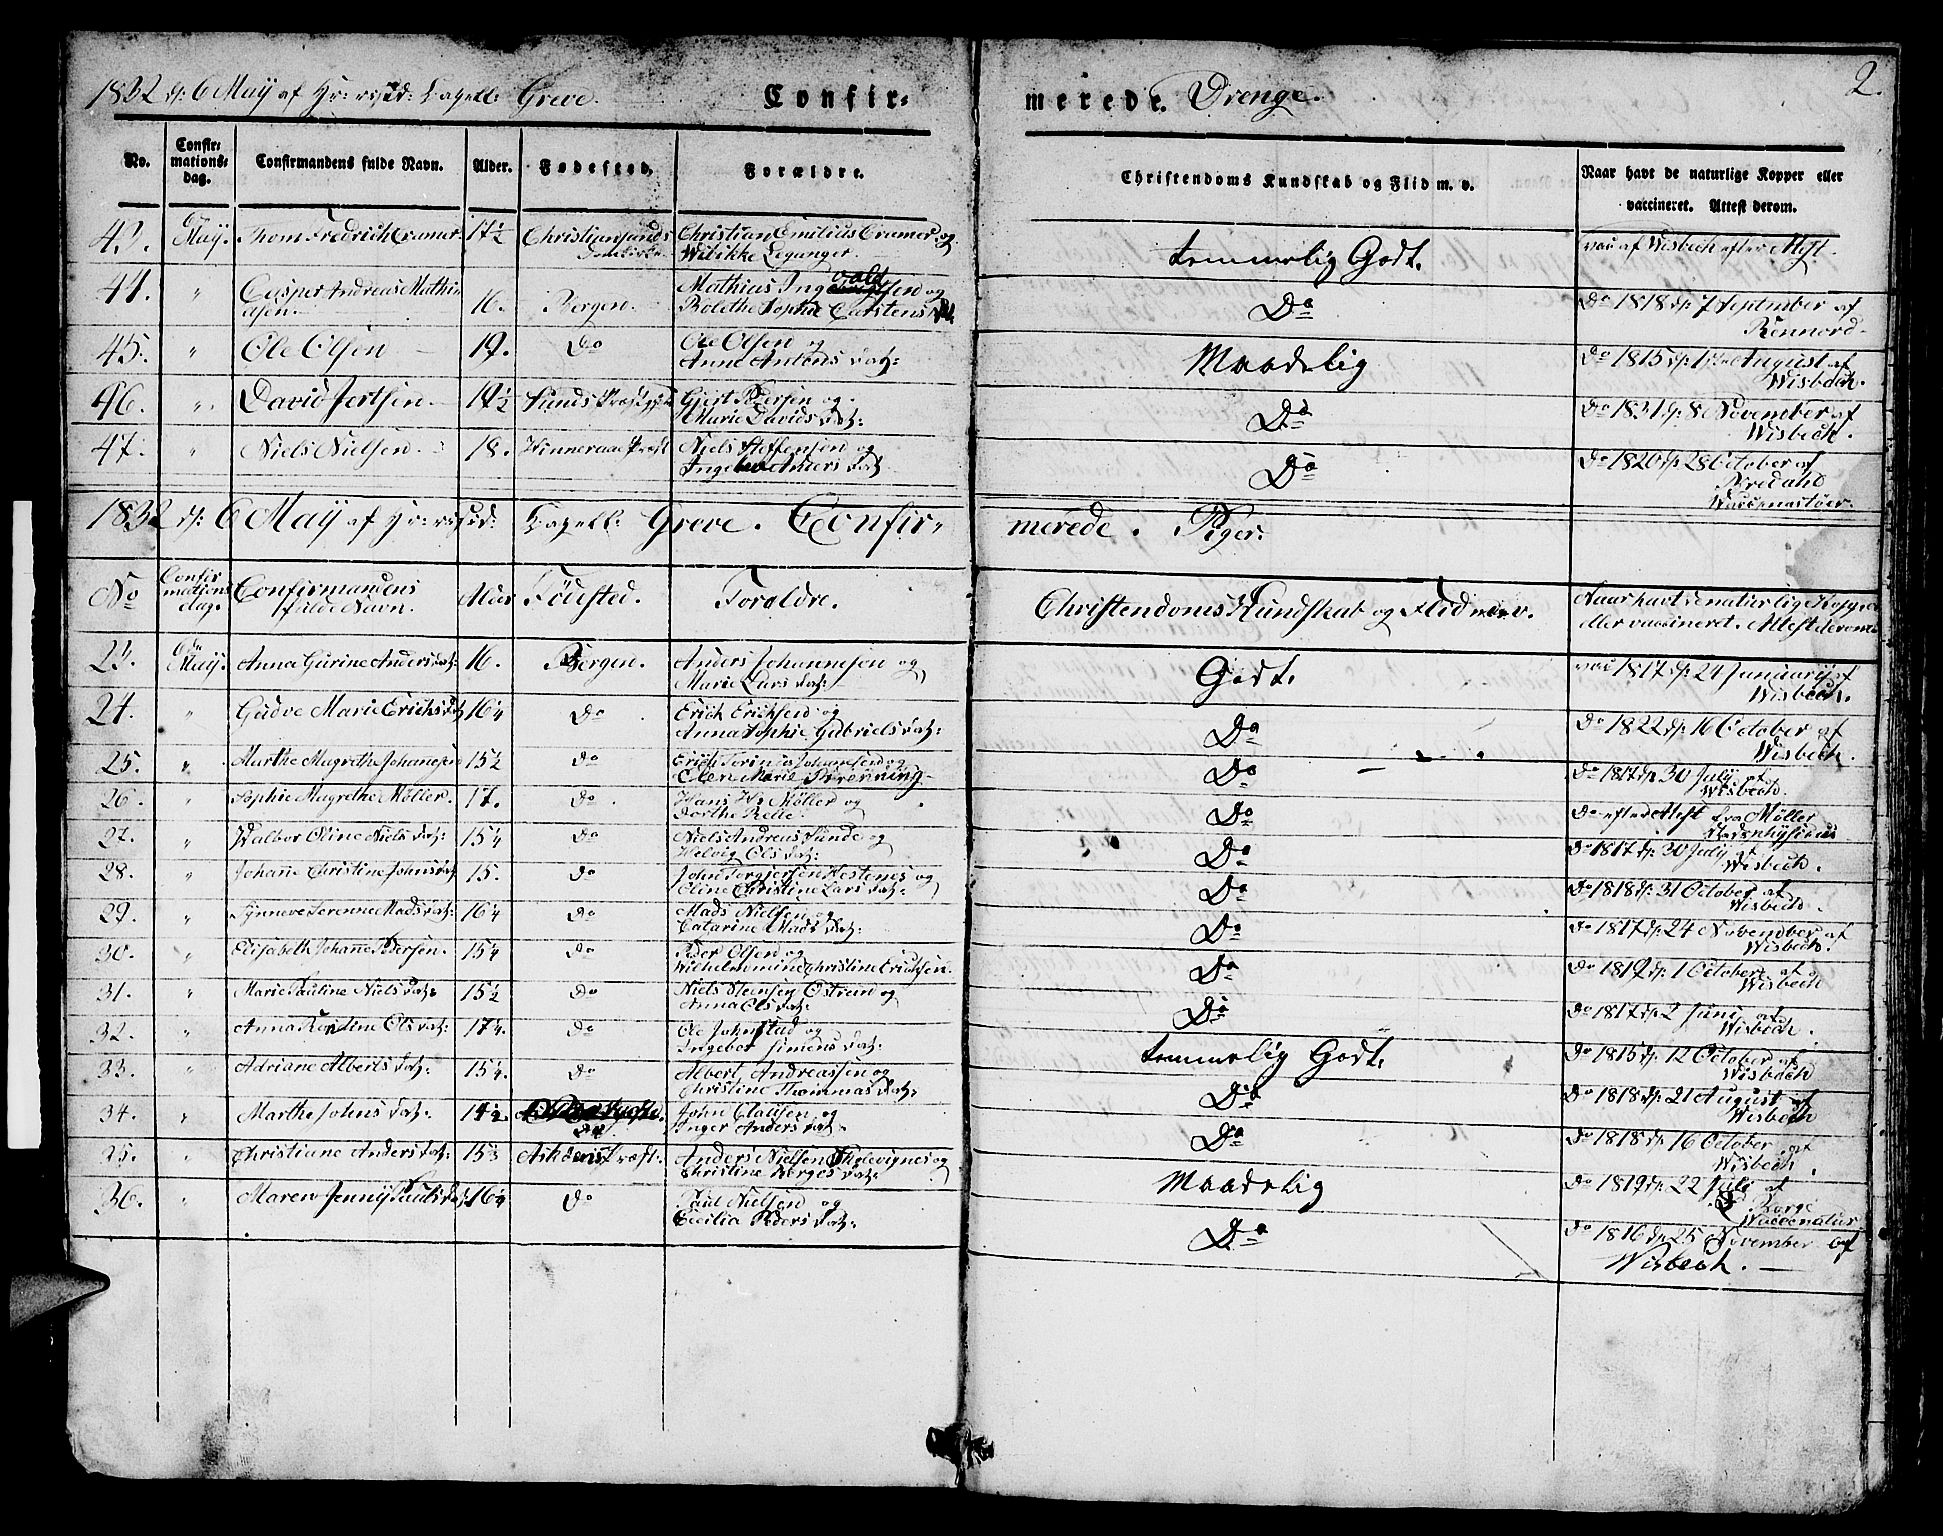 1832 d: 6 May af Hr: Capell: Greve. Confir= merede. Drenge. 2.
No. Confirmations=dag. Confirmandens fulde Navn. Alder. Fødested. Forældre. Christendoms Kundskab og Flid m. v. Naar havt de naturlige Kopper eller vaccineret. Attest derom.
43. 6 May. Thom Fredrich Cramer 17½ Christiansands Christian Emilius Cramer og Wibikke Leganger. temmelig Godt. vac af Wisbech efter Attest.
44. " Casper Andreas Mathiasen. 16. Bergen. Mathias Ingvald og Bolethe Sophie Carstens Do Do 1818 d: 7 September af Rennord
45. " Ole Olsen 19. Do Ole Olsen og Anne Antons dat: Maadelig Do 1815 d: August af Wisbech.
46. " David Jertsen 19½ Sunds Gjert Pedersen og Marie Davids dat: Do Do 1831 d: 8 November af Wisbech.
47. " Niels Nielsen. 18. Niels Steffensen og Ingebor Anders dat Do Do 1820 d: 28 October af
1832 d: 6 May af Hr: Capell: Greve. Confir= merede. Piger.
No Confirmations dag. Confirmandens fulde Navn. Alder Fødested. Forældre. Christendoms Kundskab og Flid m v. Naar havt de naturlig Kopper eller vaccineret. Attest derom
23. 6te May. Anna Gurine Anders dat: 16. Bergen. Anders Johannesen og Marie Lars dat: Godt. vac 1817 d: 24 Januarij af Wisbech.
24. " Gudve Marie Erichs dat 16¼ Do Erich Erichsen og Anna Sophie Gabriels dat: Do Do 1822 d: 16 October af Wisbech.
25. " Marthe Magrethe Johanesen 15½ Do Erich Johanesen og Elen Marie Do Do 1817 d: 30 July af Wisbech.
26. " Sophie Magrethe Møller. 17. Do Hans H: Møller og Dorthe Relie. Do Do efter Attest fra Møller
27. " Walbor Oline Niels dat: 15¼ Do Niels Andreas Sunde og Helvig Ols dat: Do Do 1817 d: 30 July af Wisbech.
28. " Johane Christine Johns dat 15. Do John Torgersen Hestenes og Oline Christine Lars dat: Do Do 1818 d: 31 October af Wisbech.
29. " Synneve Serenne Mads dat: 16¼ Do Mads Nielsen og Catarine Mads dat: Do Do 1817 d: 24 November af Wisbech.
30. " Elisabeth Johane Pedersen. 15¼ Do Peder Olsen og Wilhelmmine Christine Erichsen. Do Do 1819 d: 1 October af Wisbech
31. " Marie Pauline Niels dat: 15½ Do Niels Steensen Østrein og Anna Ols dat: Do Do 1817 d: 2 Juni af Wisbech.
32. " Anna Kirstine Ols dat: 17¼. Do Ole Johnstad og Ingebor Simens dat: temmelig Godt. Do 1815 d: 12 October af Wisbech
33. " Adriane Alberts dat: 15¼. Do Albert Andreassen og Christine Thommas dat: Do Do 1818 d: 21 August af Wisbech
34. " Marthe Johns dat: Do John Clausen og Inger Anders dat Do Do 1818 d: 16 October af Wisbech.
35. " Christiane Anders dat: Askøens Præst: Anders Nielsen og Christine Børges dat: Maadelig Do 1819 d: 22 Juli af Børge
36. " Maren Jenny Pauls dat. 16¼ Do Paul Nielsen og Cecilia Peders dat: Do Do 1816 d: 25 November af Wisbech.